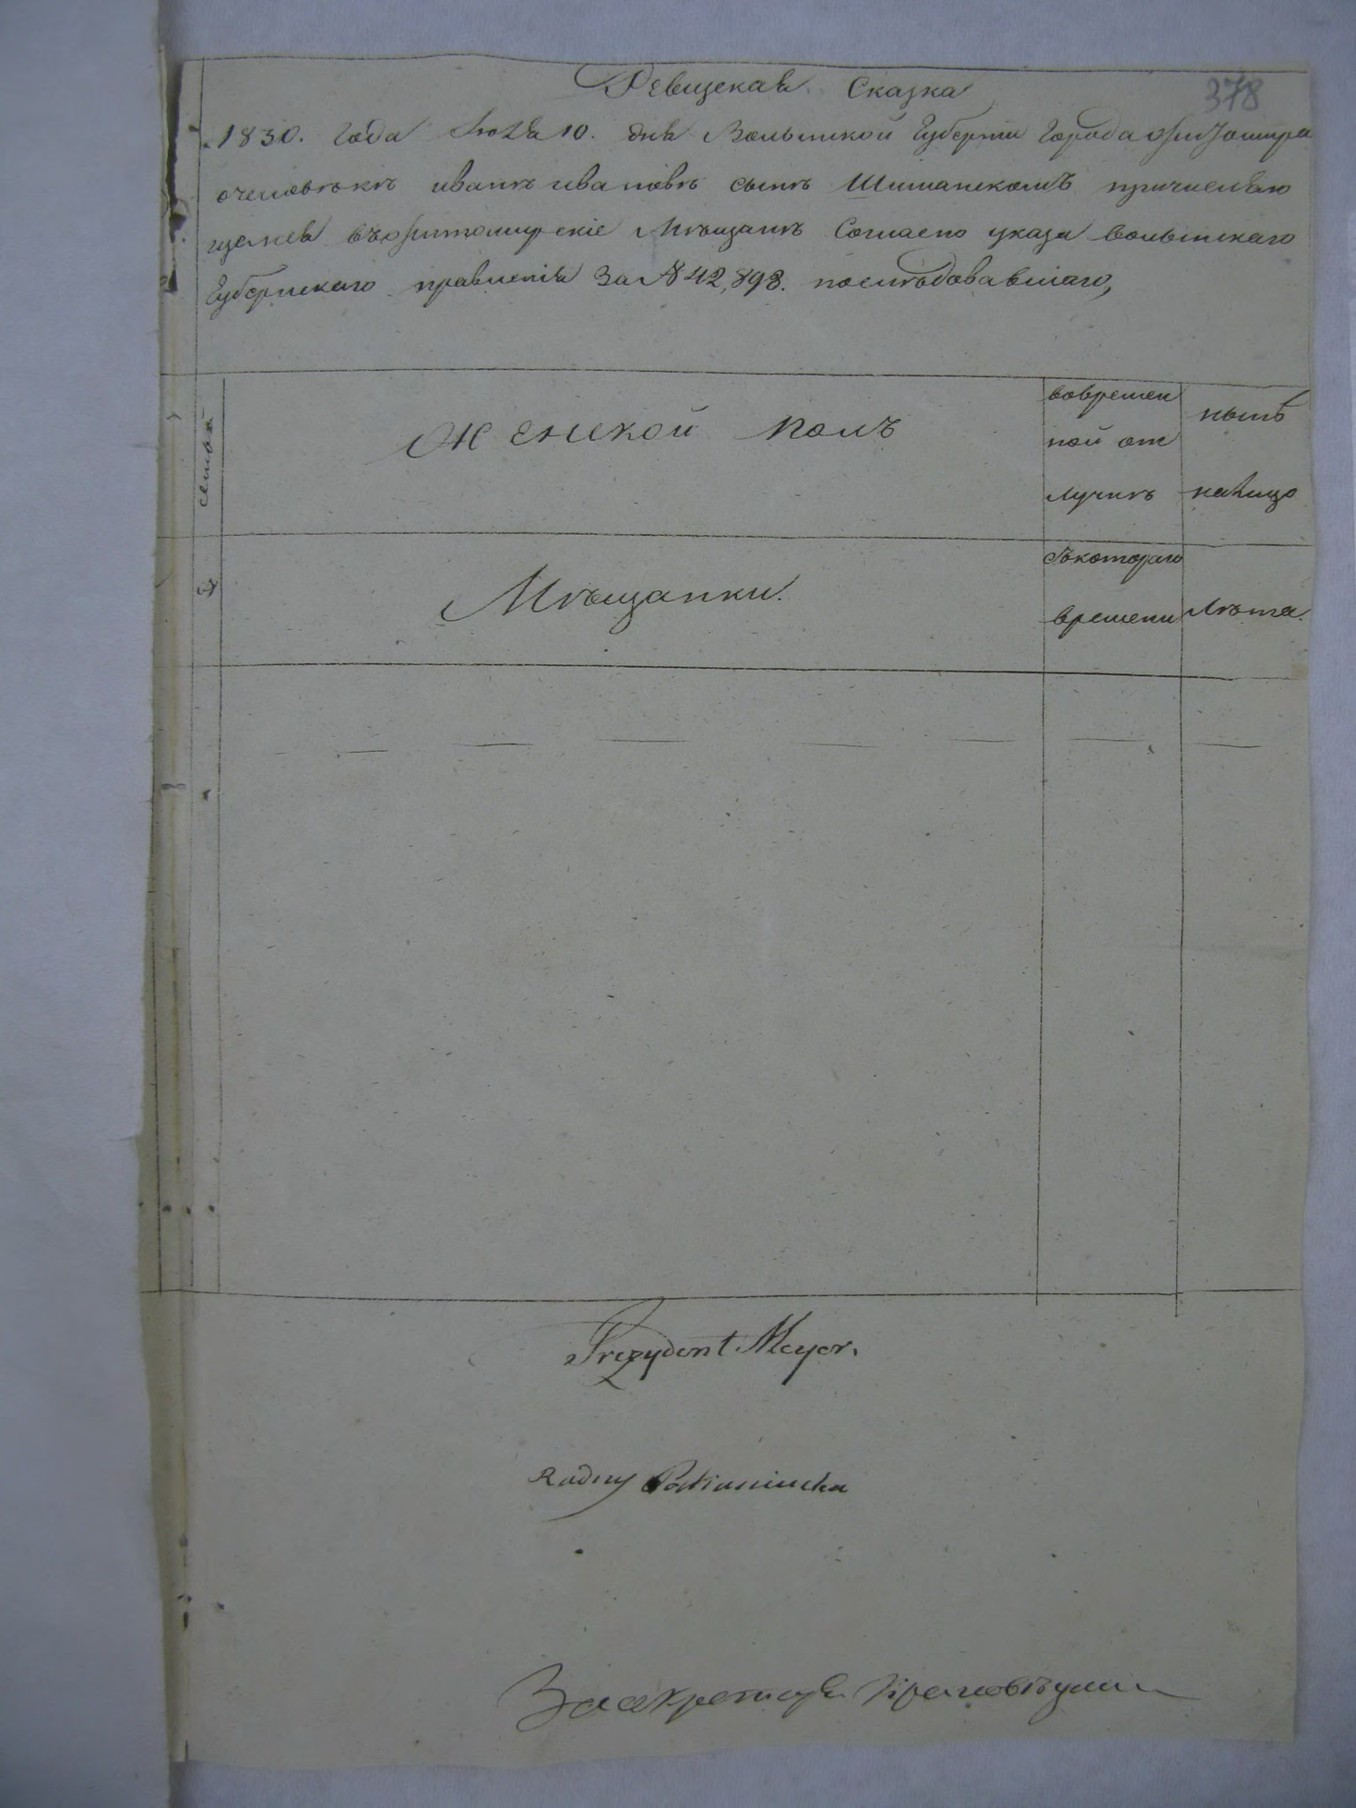 Ревизская Сказка
378
1830. Года Июля 10. дня Волынской Губернии Города Житомира
очеловѣкѣ иванѣ ивановѣ сынѣ Шиманскомъ причисляю
щемся въжитомирскіе Мѣщанѣ Согласно указа волынскаго
Губернскаго правленія За № 42,898. послѣдовавшаго,
семьи
Женской полъ
вовремен
ной от
лучкѣ
нынѣ
налицо
Мѣщанки.
Съкотораго
времени
Лѣта.
Prezydent Meyer.
Radny
За секретаря